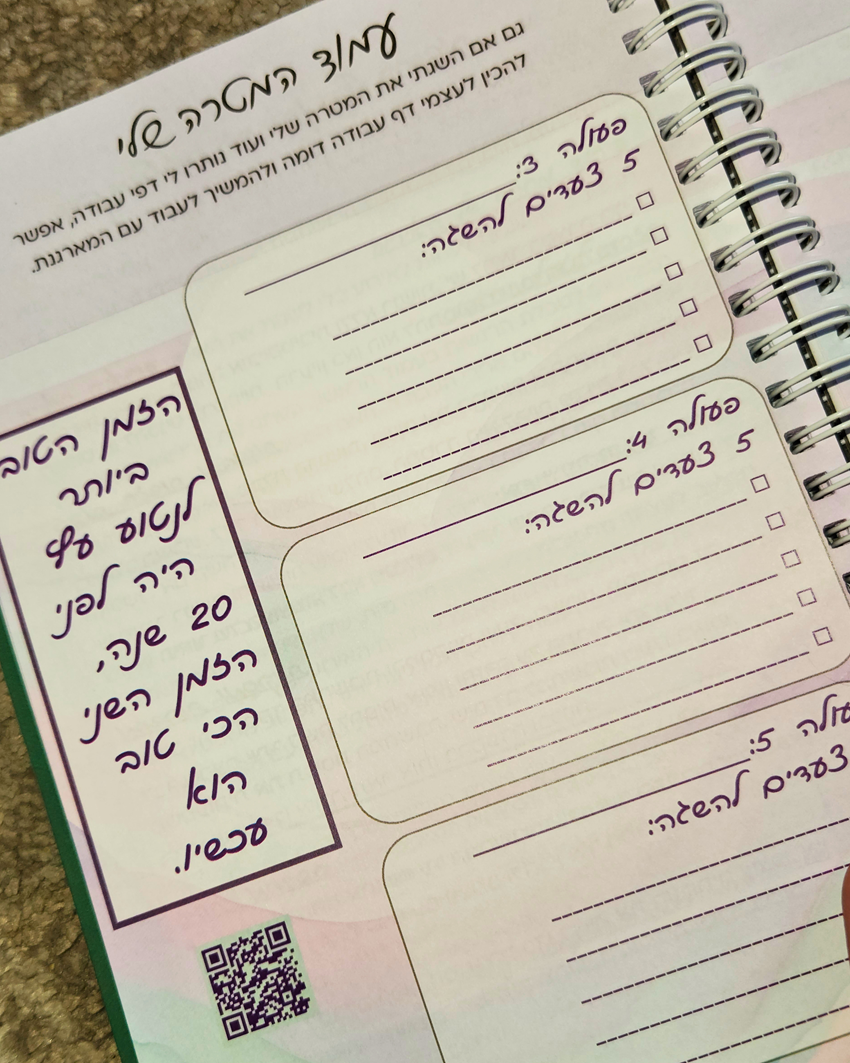 עמוד המטרה שלי
גם אם השגתי את המטרה שלי ועוד נותרו לי דפי עבודה, אפשר
להכין לעצמי דף עבודה דומה ולהמשיך לעבוד עם המארגנת.
פעולה 3:
5 צעדים להשגה:
פעולה 4:
5 צעדים להשגה:
5:
צעדים להשגה:
הזמן הטוב
ביותר
לנטוע עץ
היה לפני
20 שנה,
הזמן השני
הכי טוב
הוא
עכשיו.